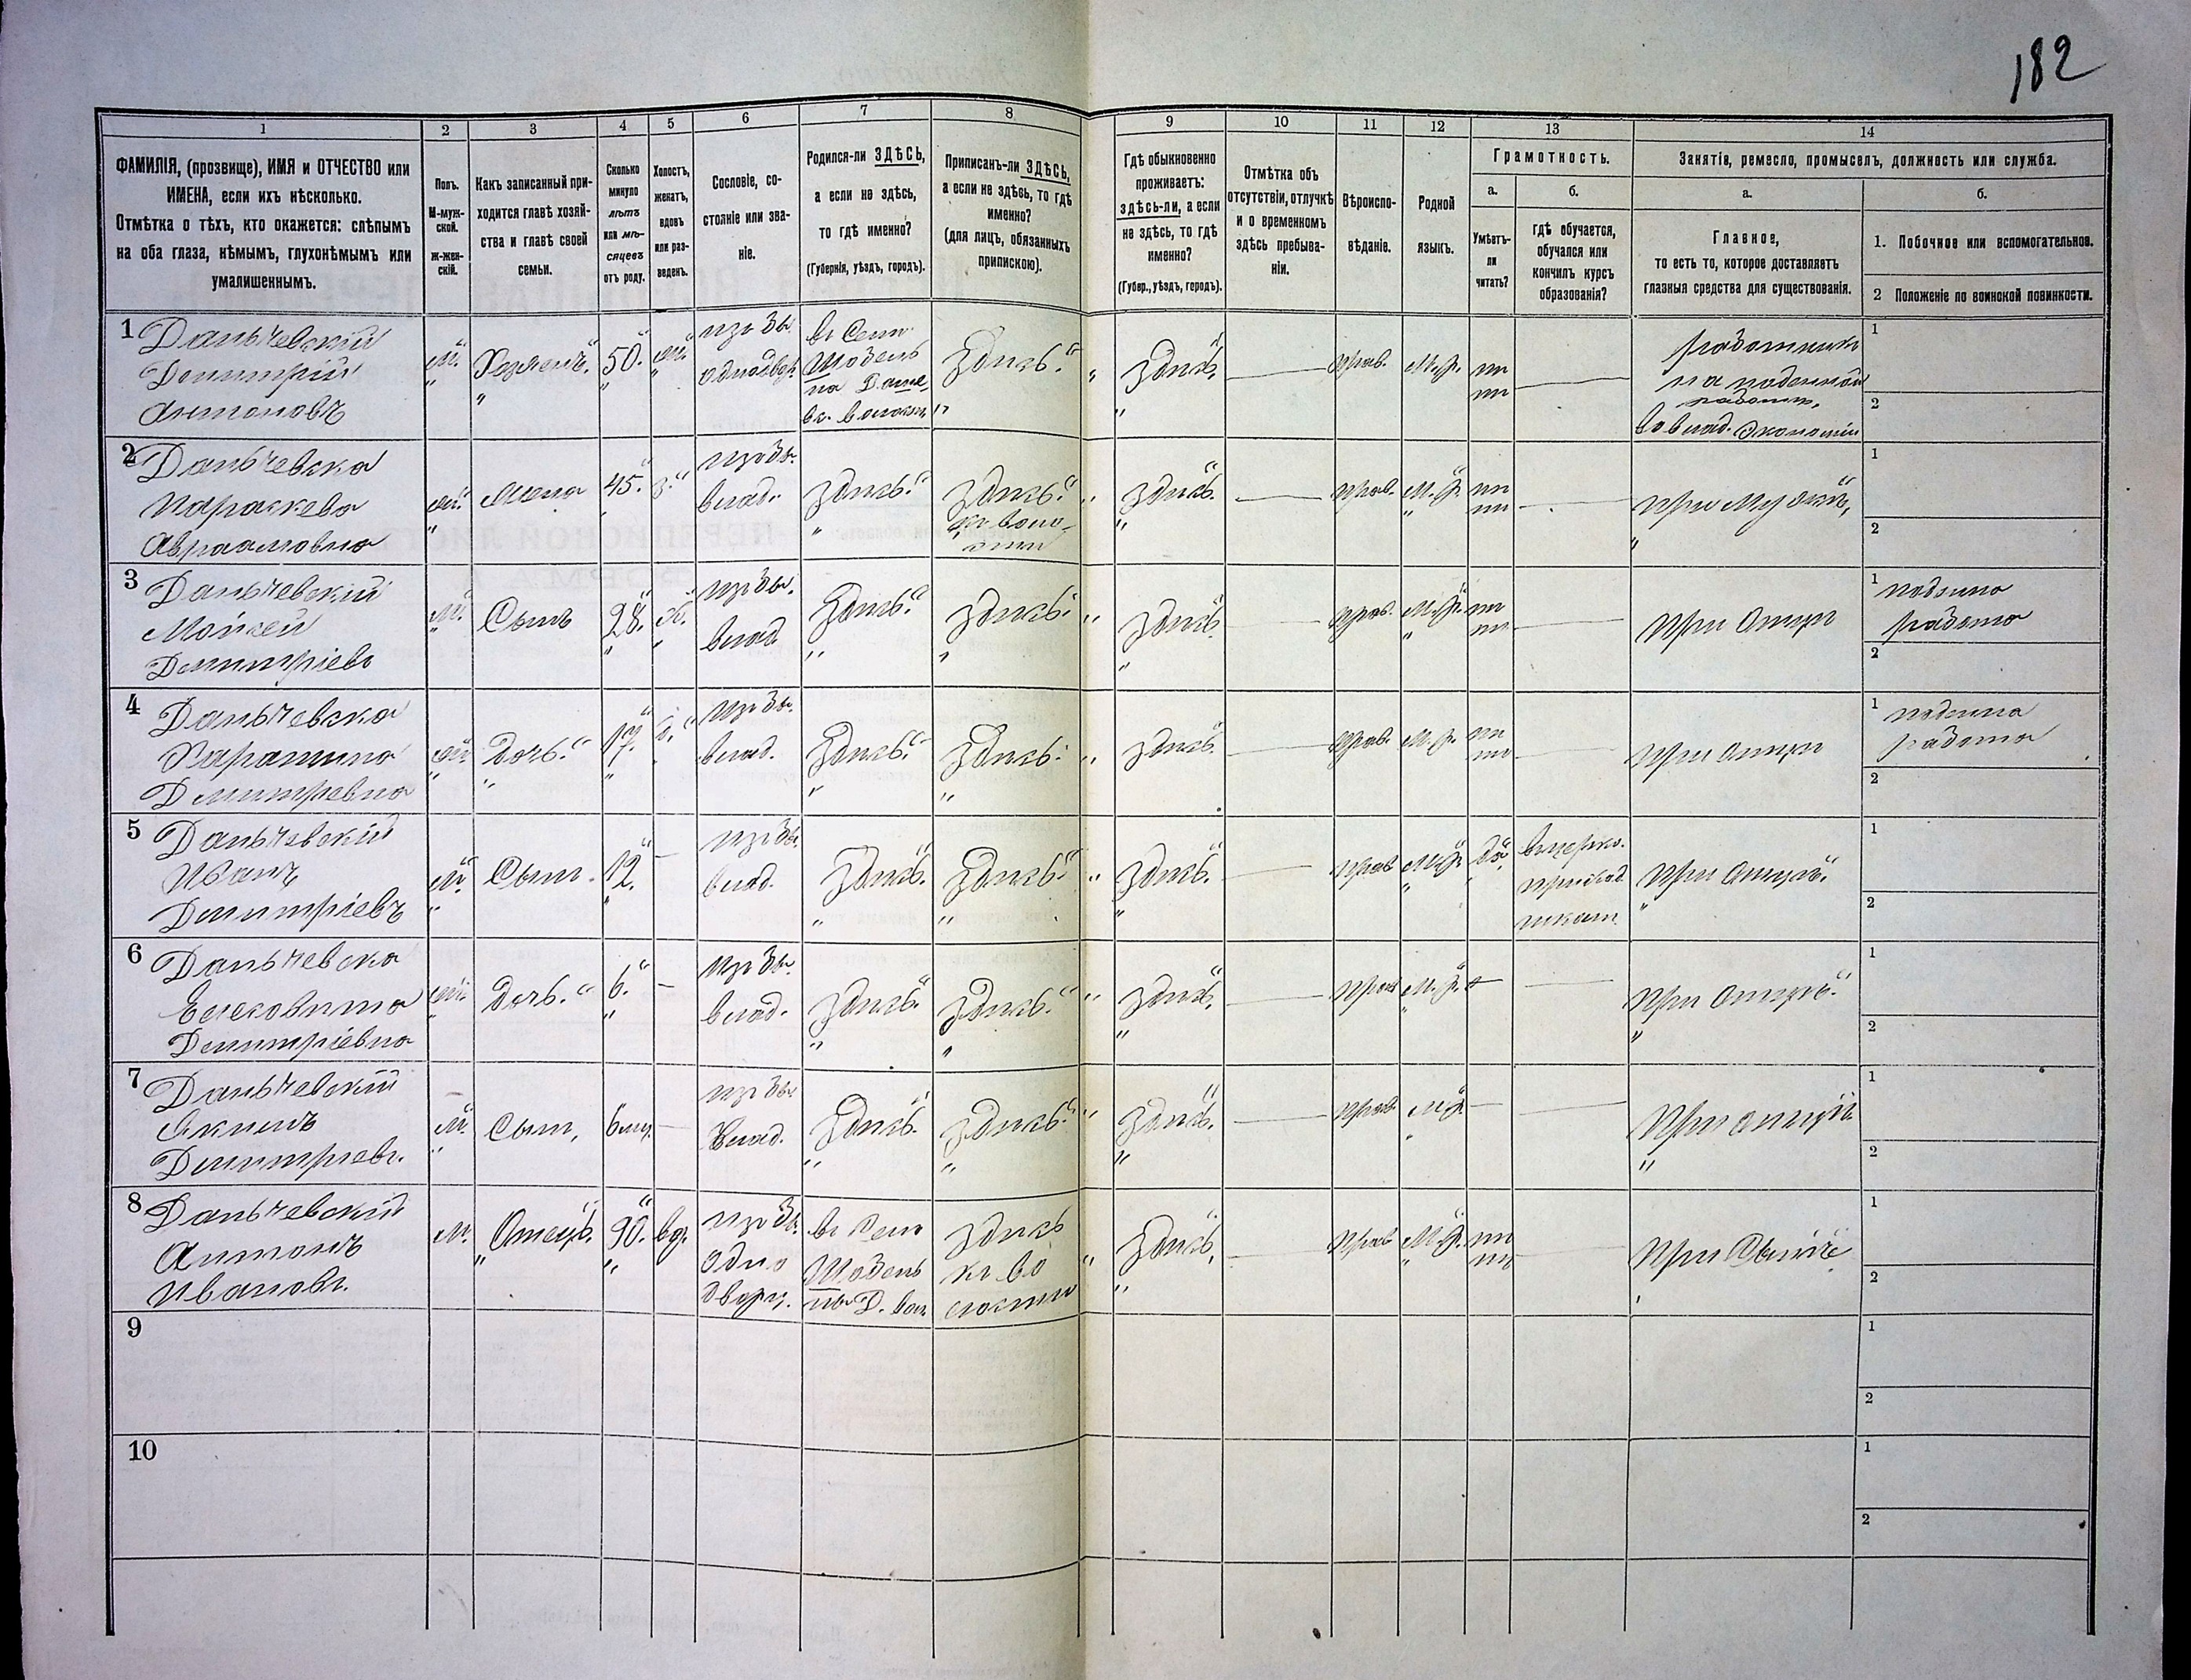 182
1
2
3
4
5
6
7
8
9
10
11
12
13
14
ФАМИЛІЯ, (прозвище), ИМЯ и ОТЧЕСТВО или
ИМЕНА, если ихъ нѣсколько.
Отмѣтка о тѣхъ, кто окажется: слѣпымъ
на оба глаза, нѣмымъ, глухонѣмымъ или
умалишеннымъ.
Полъ.
М-муж-
ской.
ж-жен-
скій.
Какъ записанный при-
ходится главѣ хозяй-
ства и главѣ своей
семьи.
Сколько
минуло
лѣтъ
или мѣ-
сяцевъ
отъ роду.
Холостъ,
женатъ,
вдовъ
или раз-
веденъ.
Сословіе, со-
стояніе или зва-
ніе.
Родился-ли ЗДѢСЬ,
а если не здѣсь,
то гдѣ именно?
(Губернія, уѣздъ, городъ).
Приписанъ-ли ЗДѢСЬ,
а если не здѣсь, то гдѣ
именно?
(для лицъ, обязанныхъ
припискою).
Гдѣ обыкновенно
проживаетъ:
здѣсь-ли, а если
не здѣсь, то гдѣ
именно?
(Губер., уѣздъ, городъ).
Отмѣтка объ
отсутствіи, отлучкѣ
и о временномъ
здѣсь пребыва-
ніи.
Вѣроиспо-
вѣданіе.
Родной
языкъ.
Грамотность.
а.
Умѣетъ-
ли
читать?
б.
гдѣ обучается,
обучался или
кончилъ курсъ
образованія?
Занятіе, ремесло, промыселъ, должность или служба.
а.
Главное,
то есть то, которое доставляетъ
главныя средства для существованія.
б.
1. Побочное или вспомогательное.
2 Положеніе по воинской повинности.
1
Даньчевскій
Димитрій
Антоновъ
М.
Хозяинъ.
50.
изъ бы.
однодвор.
въ Сели
здись.
здись.
прав.
М.р.
ни
ни
работникъ
на поденной
работи,
во влад. экономіи
1
2
2
Даньчевска
Параскева
Авраамовна
Жена
45.
з.
изъ бы.
влад.
здись.
здись.
здись.
прав.
М.р.
ни
ни
при Мужѣ,
1
2
3
Даньчевскій
Мойсей
Димитріевъ
М.
Сынъ
28.
изъ бы.
влад
здись.
здись.
здись.
прав.
М.р.
ни
ни
при Отци
1 подення
работа
2
4
Даньчевска
Димитревна
Дочь.
17.
изъ бы.
влад.
здись.
здись.
здись.
прав.
М.р.
ни
ни
при Отци
1 подення
работа
2
5
Даньчевскій
Иванъ
Димитріевъ
М.
Сынъ.
12.
изъ бы.
влад.
здись.
здись.
здись.
прав
М.р.
да
въ церко.
приход.
школи
при Отцѣ.
1
2
6
Даньчевска
Димитріевна
Дочь.
6.
изъ бы.
влад.
здись.
здись.
здись.
прав
М.р.
при Отцѣ.
1
2
7
Даньчевскій
Якимъ
Димитріевъ.
М.
Сынъ,
6 мц.
изъ бы
влад.
здись.
здись.
здись.
прав
М.р.
при отцѣ
1
2
8
Даньчевскій
Антонъ
Ивановъ.
М.
Отецъ.
90.
вд.
изъ бы.
одно
дворц.
въ Сели
здись
къ во
лости
здись.
прав
М.р.
ни
ни
при Сынѣ
1
2
9
1
2
10
1
2